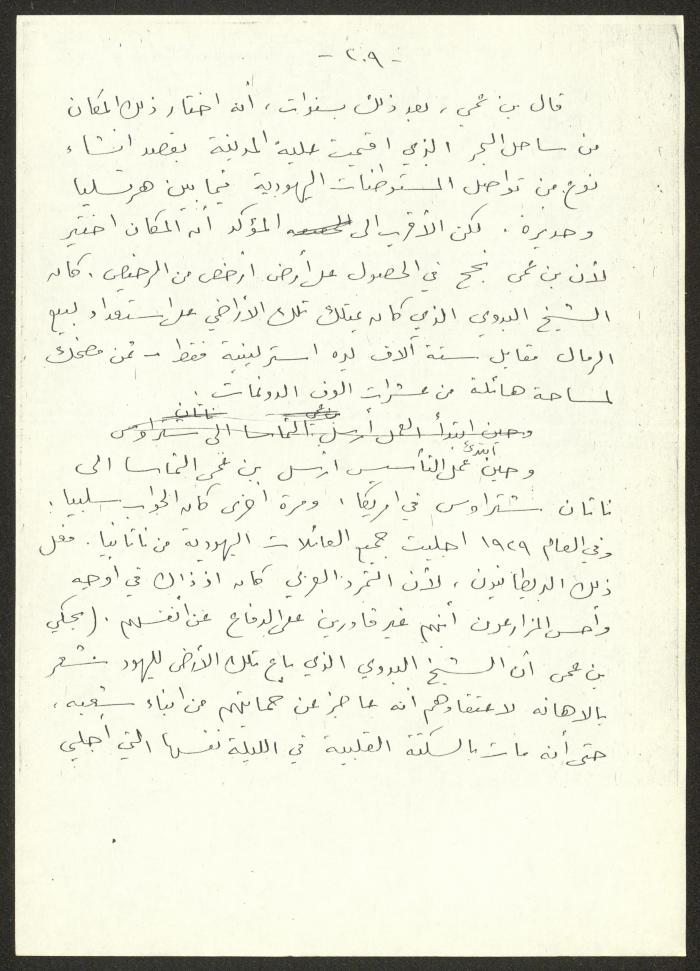 - ٢٠٩ -
قال بن عمي ، بعد ذلك بسنوات ، أنه اختار ذلك المكان
من ساحل البحر الذي اقيمت عليه المدينة بقصد انشاء
نوع من تواصل المستوطنات اليهودية فيما بين هرتسليا
وحديرة . لكن الأقرب الى المؤكد أن المكان اختير
لأن بن عمي نجح في الحصول على أرض أرخص من الرخيص . كان
الشيخ البدوي الذي كان يمتلك تلك الأراضي على استعداد لبيع
الرمال مقابل ستة آلاف ليره استرلينية فقط - ثمن مضحك
لمساحة هائلة من عشرات الوف الدونمات .
بن عمي ناتان
وحين ابتدأ العمل أرسل التماسا الى شتراوس
وحين ابتدئ عمل التأسيس ارسل بن عمي التماسا الى
ناتان شتراوس في امريكا . ومرة اخرى كان الجواب سلبيا .
وفي العام ١٩٢٩ اجليت جميع العائلات اليهودية من ناتانيا . فعل
ذلك البريطانيون ، لأن التمرد العربي كان اذ ذاك في أوجه
وأحس المزارعون أنهم غير قادرين على الدفاع عن أنفسهم . ( يحكي
بن عمي أن الشيخ البدوي الذي باع تلك الأرض لليهود شعر
بالاهانه لاعتقادهم أنه عاجز عن حمايتهم من ابناء شعبه ،
حتى أنه مات بالسكتة القلبية في الليلة نفسها التي أجلي